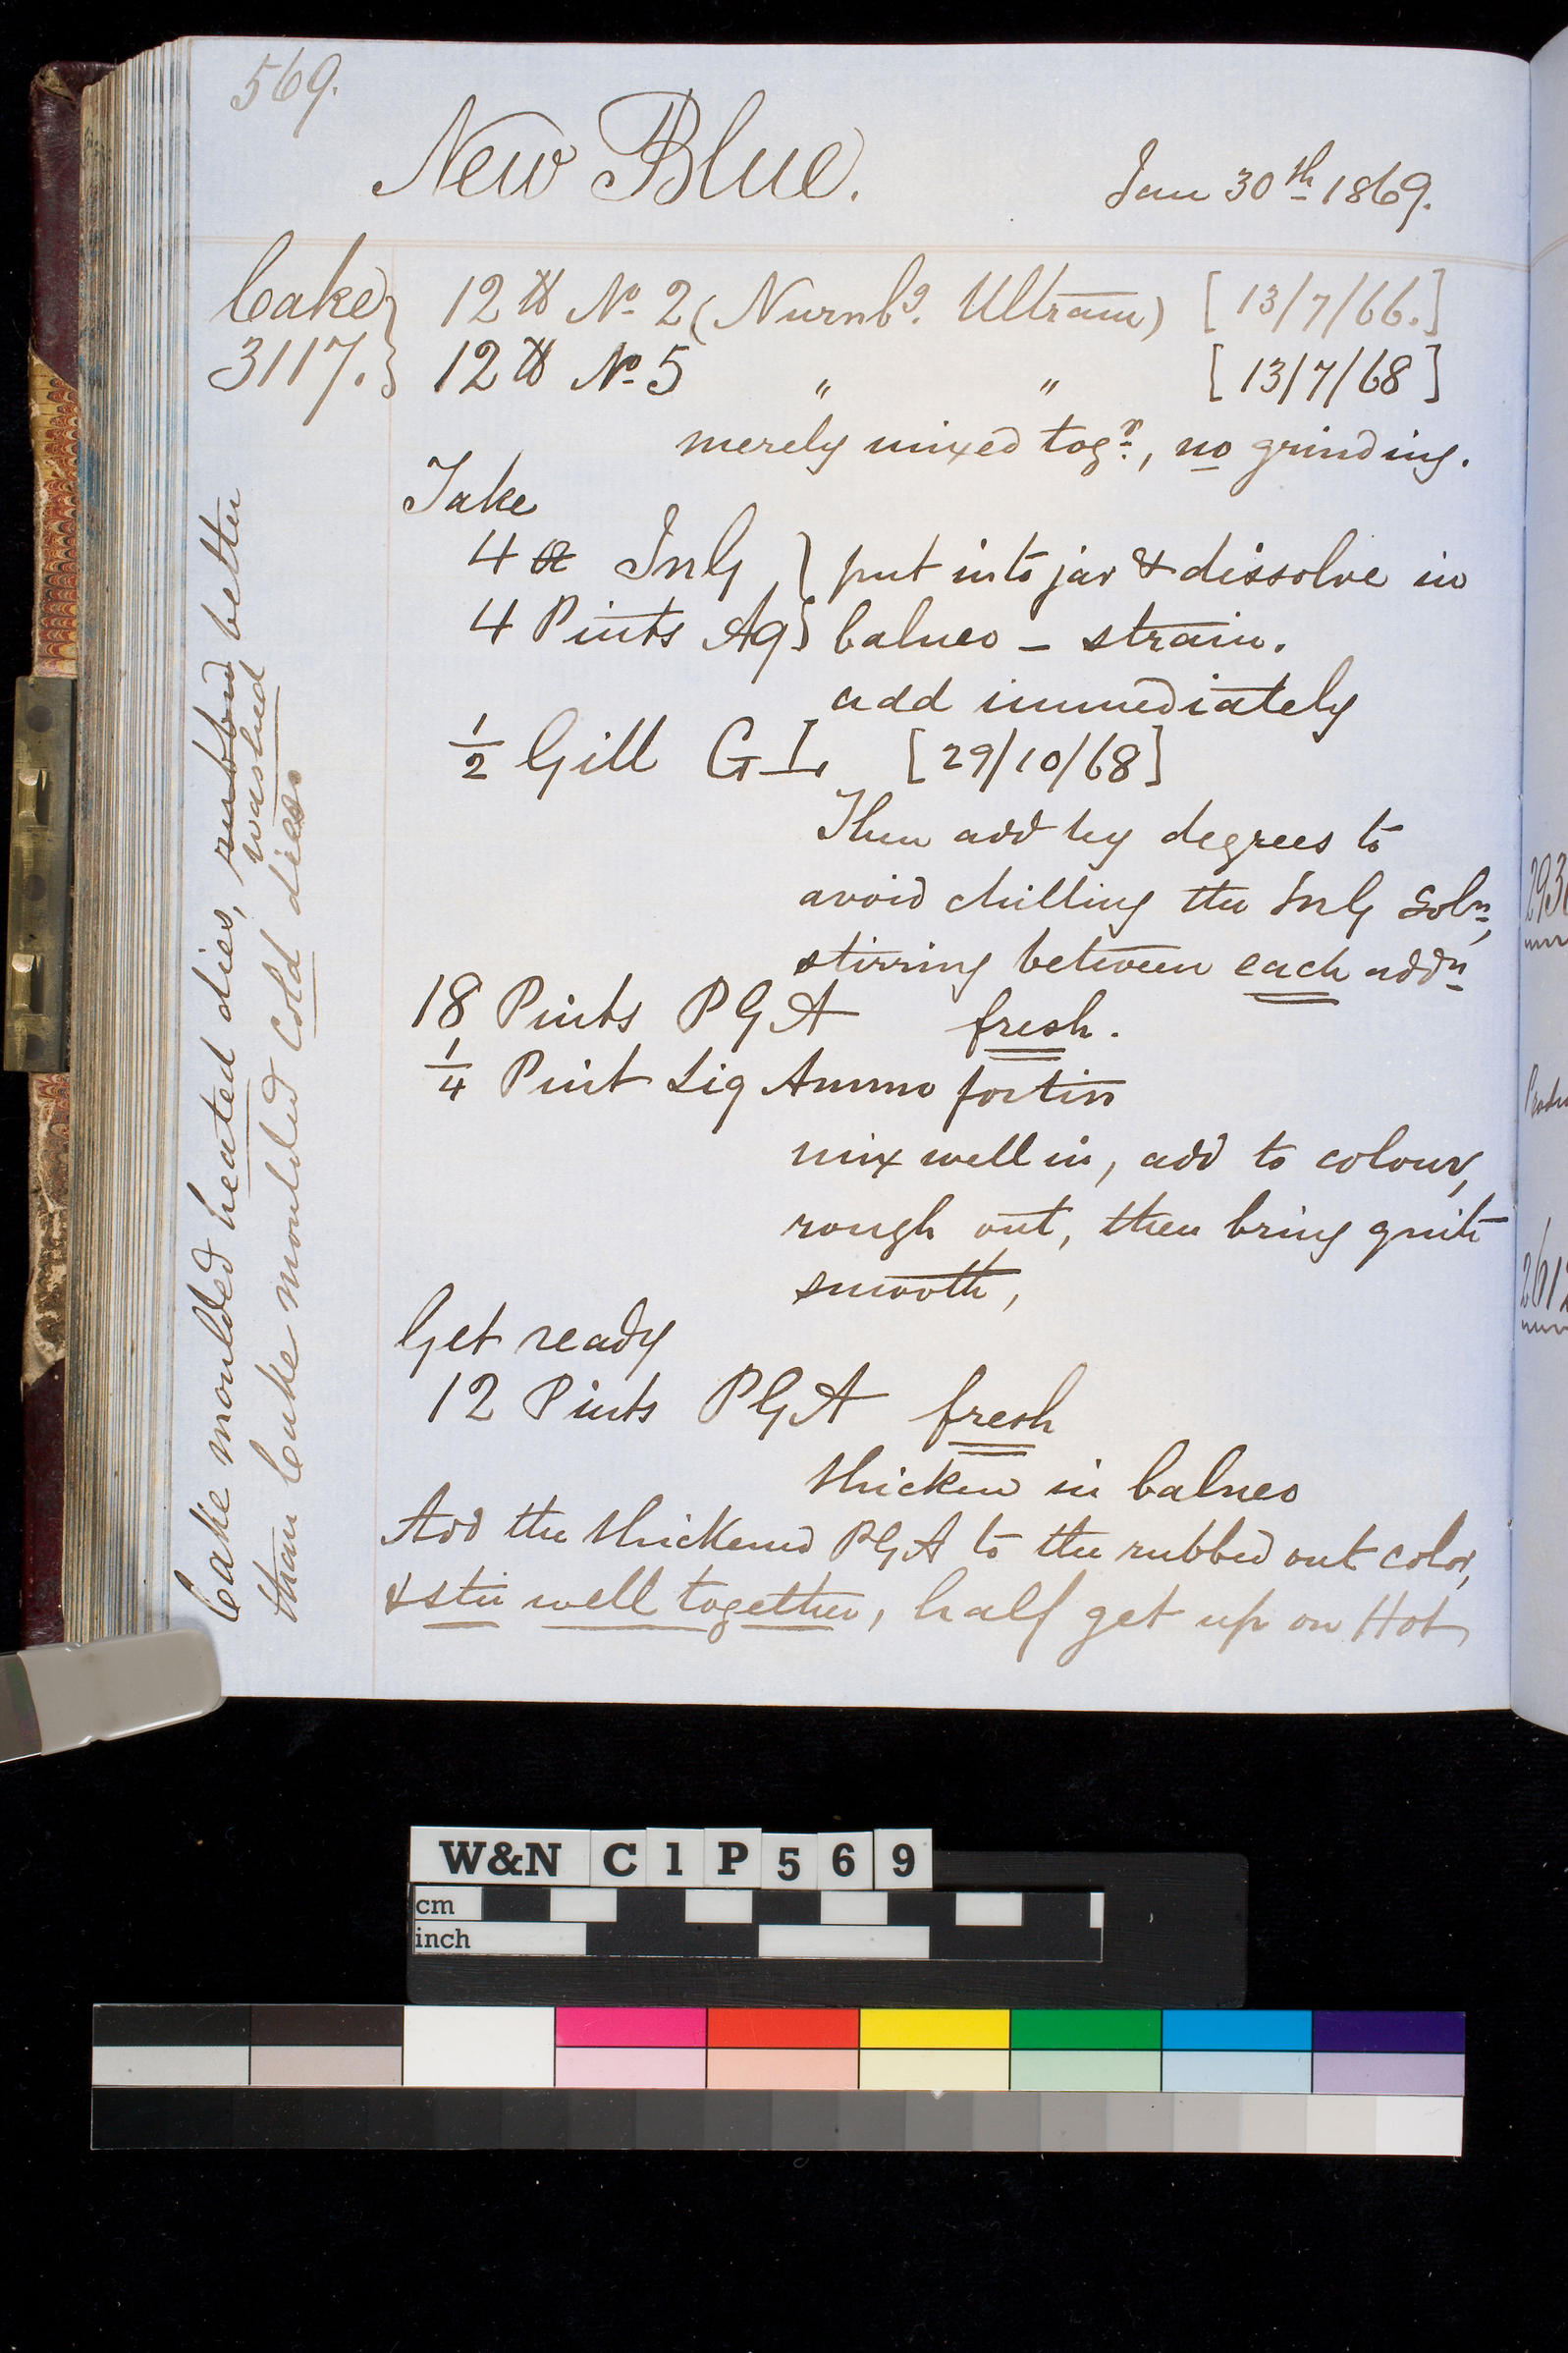 569.
New Blue.
Jan 30th 1869.
Cake 3117.
12 lb No 2 (Nurnbg. Ultram) [13/7/66.]
12 lb No 5 " " [13/7/68]
merely mixed togr, no grinding.
Take
4 oz InG } put into jar & dissolve in
4 Pints Aq } balneo – strain.
add immediately
1/2 Gill GL [29/10/68]
Then add by degrees to
avoid chilling the InG Soln,
stirring between each addn
18 Pints PGA fresh.
1/4 Pint Liq Ammo fortis
mix well in, add to colour,
rough out, then bring quite
smooth,
Get ready
12 Pints PGA fresh
thicken in balneo
Add the thickened PGA to the rubbed out color,
& stir well together, half get up on Hot
Cake moulded heated dies, rubbed washed better
than Cake moulded cold dies
293
2612
W&N C1P569
cm
inch